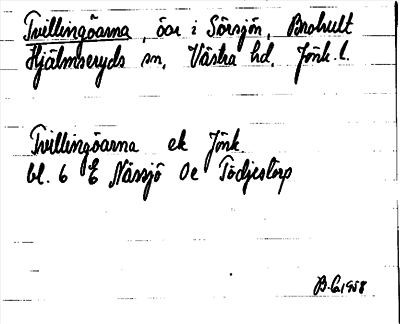 Tvillingöarna, öar i Sörsjön, Brohult
Hjälmseryds sn, Västra hd, Jönk. l.
Tvillingöarna ek Jönk
bl. 6 E Nässjö Oe Tödjestorp
1958